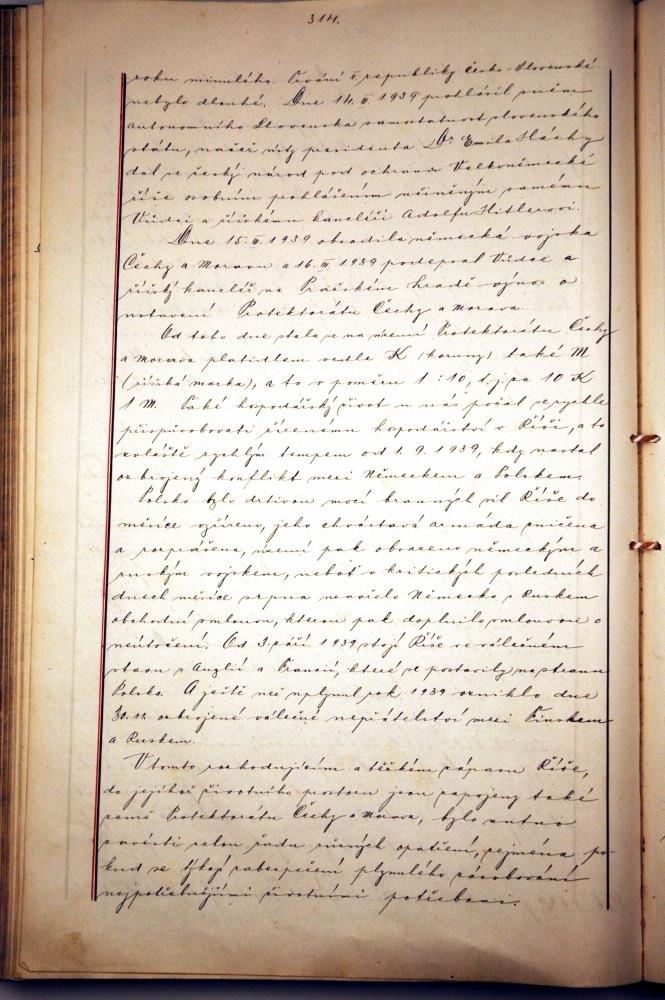 314.
roku minulého. Trvání II. republiky Česko-Slovenské
nebylo dlouhé. Dne 14. III. 1939 prohlásil sněm
autonomního Slovenska samostatnost slovenského
státu, načež ústy presidenta Dr Emila Háchy
dal se český národ pod ochranu Velkoněmecké
říše osobním prohlášením učiněným samému
Vůdci a říšskému kancléři Adolfu Hitlerovi.
Dne 15. III. 1939 obsadila německá vojska
Čechy a Moravu a 16. III 1939 podepsal Vůdce a
říšský kancléř na Pražském hradě výnos o
ustavení Protektorátu Čechy a Morava.
Od toho dne stala se na území Protektorátu Čechy
a Morava platidlem vedle K (koruny) také M
(říšská marka), a to v poměru 1:10, t. j. za 10 K
1 M. Také hospodářský život u nás počal se rychle
přizpůsobovati řízenému hospodářství v Říši, a to
zvláště rychlým tempem od 1. 9. 1939, kdy nastal
ozbrojený konflikt mezi Německem a Polskem.
Polsko bylo drtivou mocí branných sil Říše do
měsíce vyřízeno, jeho chvástavá armáda zničena
a rozprášena, území pak obsazeno německým a
ruským vojskem, neboť v kritických posledních
dnech měsíce srpna uzavřelo Německo s Ruskem
obchodní smlouvu, kterou pak doplnilo smlouvou o
neútočení. Od 3. září 1939 stojí Říše ve válečném
stavu s Anglií a Francií, které se postavily na stranu
Polska. A ještě než uplynul rok 1939 vzniklo dne
30. 11. ozbrojené válečné nepřátelství mezi Finskem
a Ruskem.
V tomto rozhodujícím a těžkém zápasu Říše,
do jejíhož životního prostoru jsou zapojeny také
země Protektorátu Čechy a Morava, bylo nutno
zavésti celou řadu různých opatření, zejména po-
kud se týkají zabezpečení plynulého zásobování
nejpotřebnějšími životními potřebami.